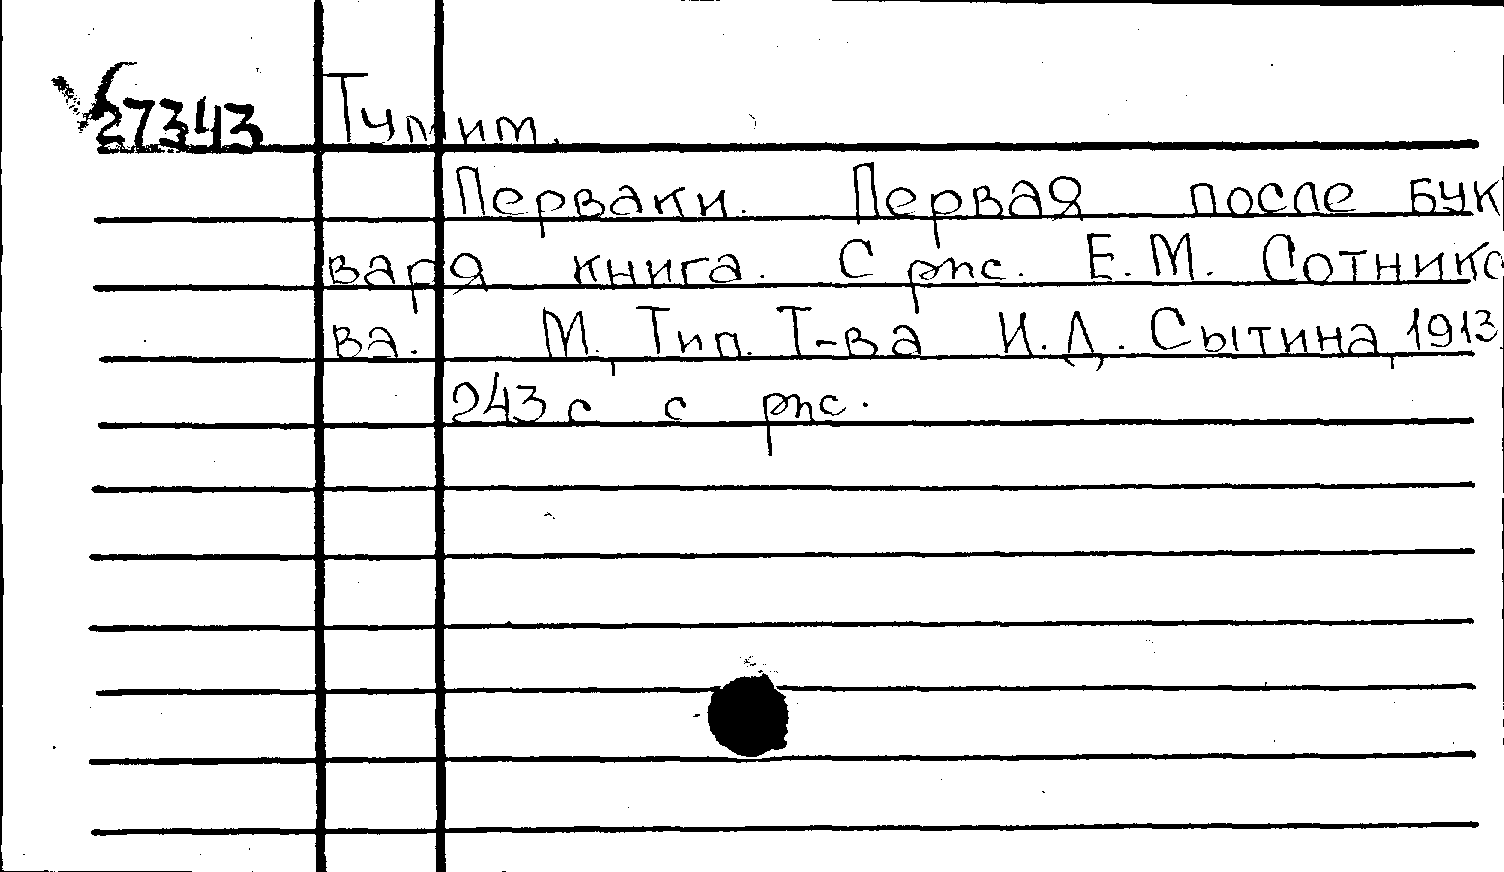 27343 Тулит.
Перваки. Первая после бук
варя книга. С рис. Е.М. Сотнико
ва. М., Тип. Т-ва И.Д. Сытина, 1913.
243 с с рис.